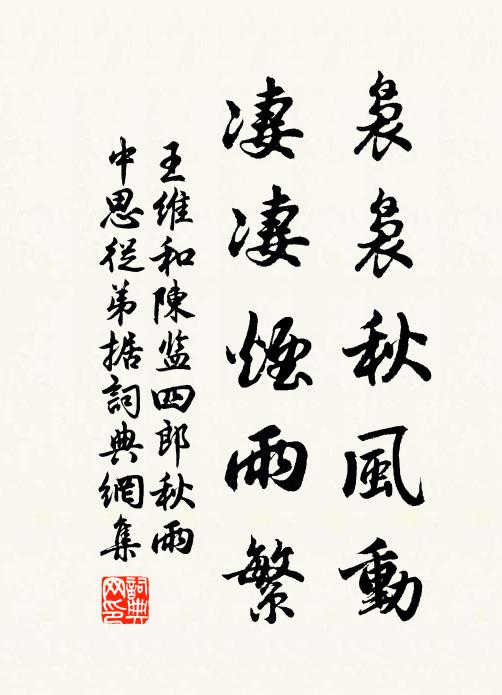 裊裊秋風動
凄凄煙雨繁
王維和陳监四郎秋雨
中思從弟据詞典網集
詞典
网印